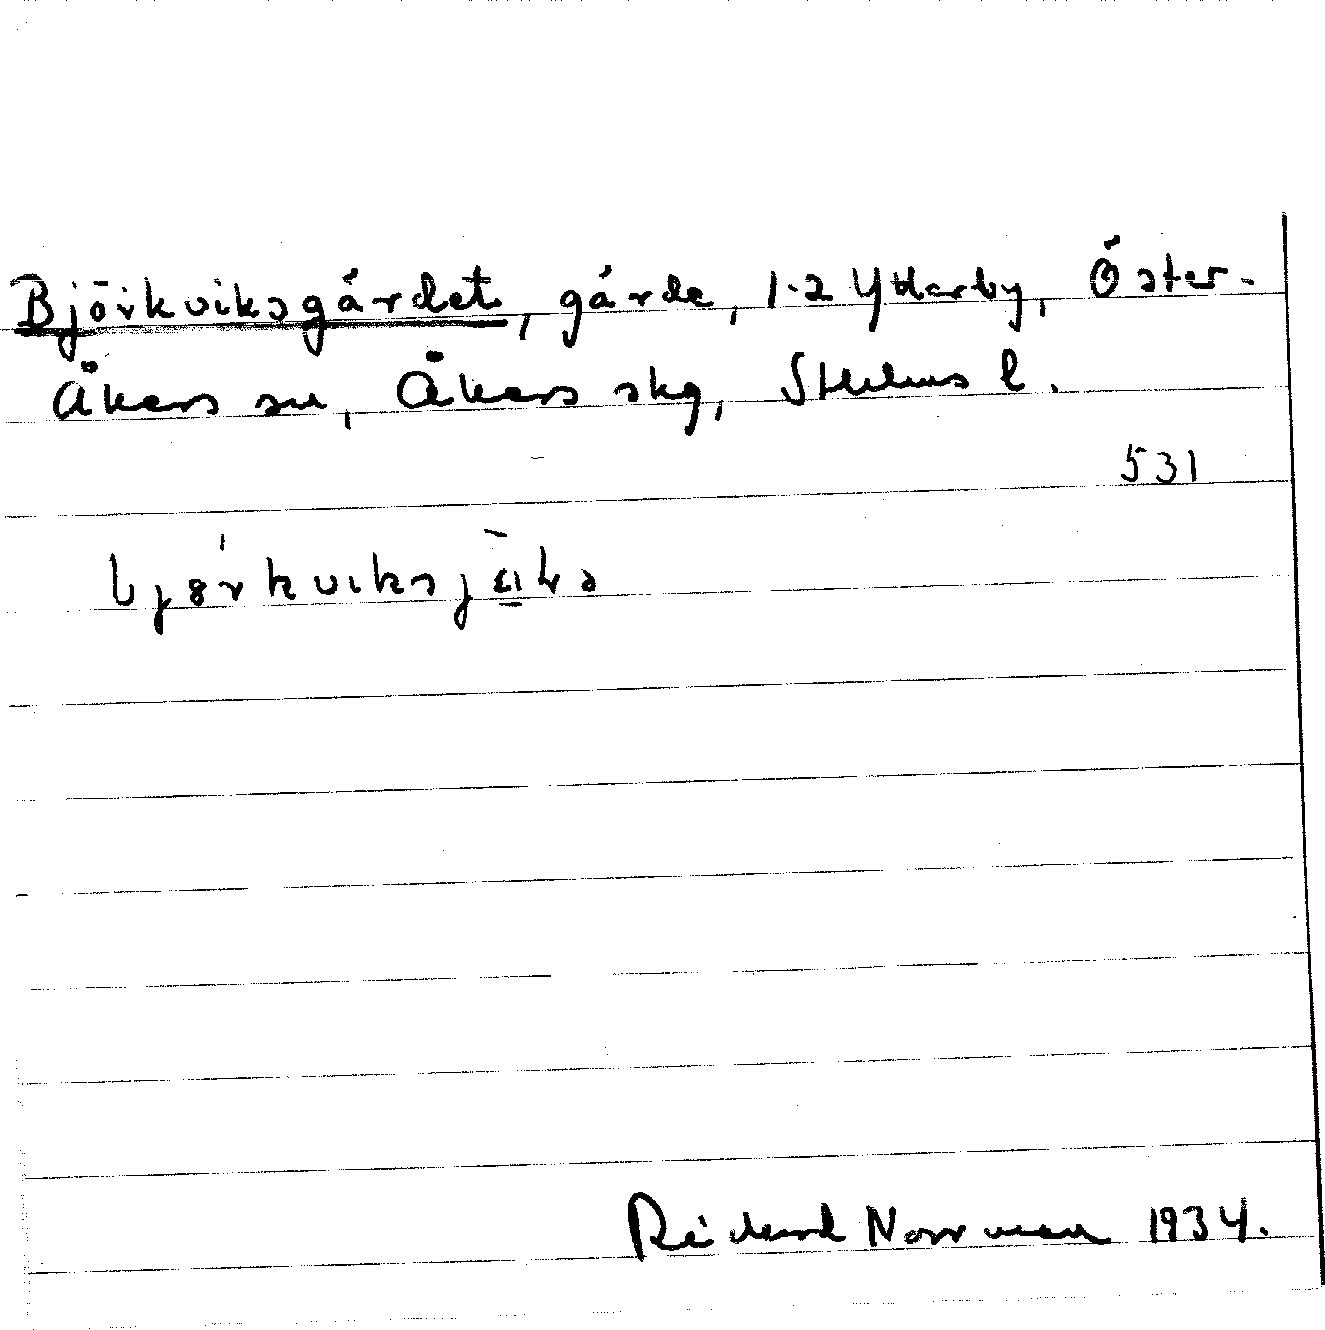 Björkviksgärdet, gärde, 1-2 Ytterby, Öster-
Åkers sn, Åkers skg, Sthlms l.
531
Rickard Norrman 1934.